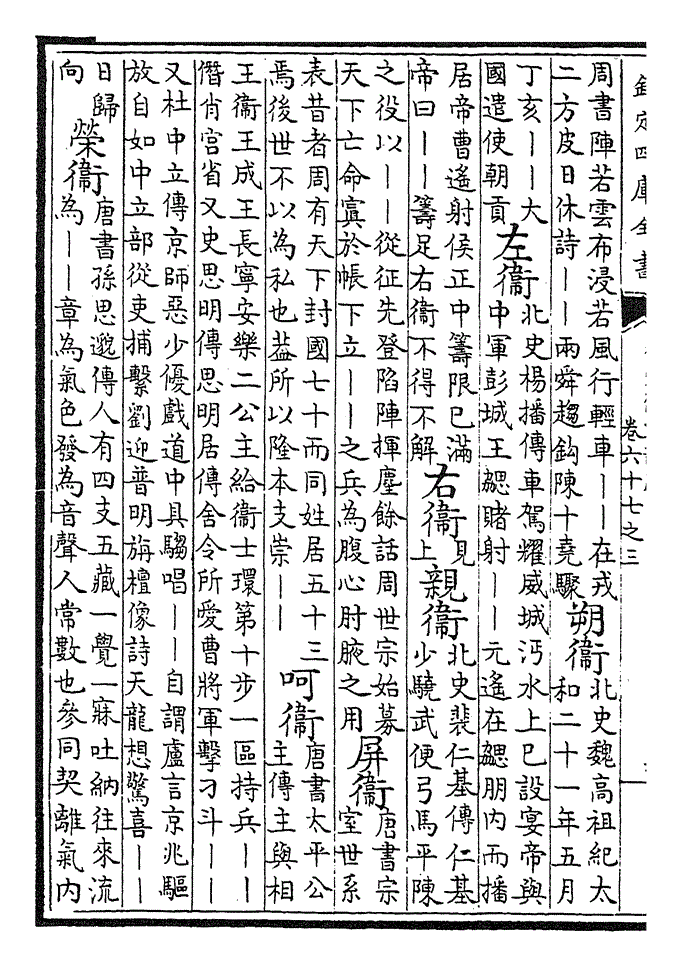 欽定四庫全書
卷六十七之三
周書陣若雲布浸若風行輕車――在戎
二方皮日休詩――兩舜趨鈎陳十堯驟
朔衛
北史魏高祖紀太
和二十一年五月
丁亥――大
國遣使朝貢
左衛
北史楊播傳車駕耀威城沔水上巳設宴帝與
中軍彭城王勰賭射――元遙在勰朋內而播
居帝曹遙射侯正中籌限已滿
帝曰――籌足右衛不得不解
右衛
見
上
親衛
北史裴仁基傳仁基
少驍武便弓馬平陳
之役以――從征先登陷陣揮麈餘話周世宗始募
天下亡命寘於帳下立――之兵為腹心肘腋之用
屏衛
唐書宗
室世系
表昔者周有天下封國七十而同姓居五十三
焉後世不以為私也葢所以隆本支崇――
呵衛
唐書太平公
主傳主與相
王衛王成王長寧安樂二公主給衛士環第十步一區持兵――
僭肖宫省又史思明傳思明居傳舍令所愛曹將軍擊刁斗――
又杜中立傳京師惡少優戲道中具騶唱――自謂盧言京兆驅
放自如中立部從吏捕繫劉迎普明旃檀像詩天龍想驚喜――
日歸
向
榮衛
唐書孫思邈傳人有四支五藏一覺一寐吐納往來流
為――章為氣色發為音聲人常數也參同契離氣內